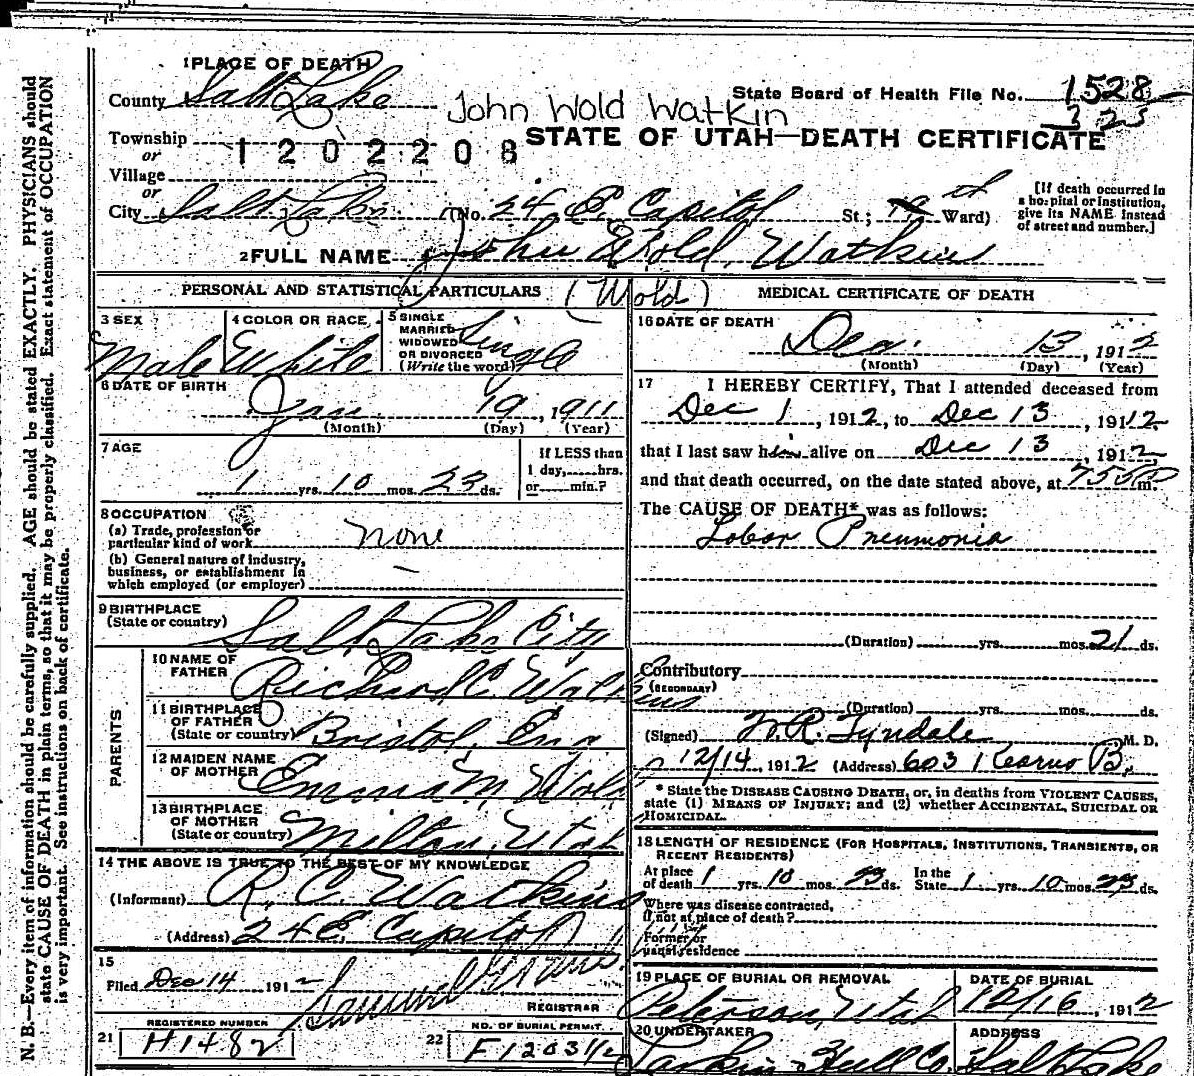 1 PLACE OF DEATH
County Salt Lake
John Wold Watkin
State Board of Health File No. 1528
325
Township
or
1202208
STATE OF UTAH—DEATH CERTIFICATE
Village
or
City Salt Lake (No. 24 E. Capitol St.; 19th Ward)
[If death occurred in
a hospital or institution,
give its NAME instead
of street and number.]
2 FULL NAME John Wold Watkins
(Wold)
PERSONAL AND STATISTICAL PARTICULARS
3 SEX
Male
4 COLOR OR RACE
White
5 SINGLE
MARRIED
WIDOWED
OR DIVORCED
(Write the word)
Single
6 DATE OF BIRTH
Jan 19, 1911
(Month) (Day) (Year)
7 AGE
1 yrs. 10 mos. 23 ds.
If LESS than
1 day, hrs.
or min.?
8 OCCUPATION
(a) Trade, profession or
particular kind of work none
(b) General nature of industry,
business, or establishment in
which employed (or employer) —
9 BIRTHPLACE
(State or country)
Salt Lake City
PARENTS
10 NAME OF
FATHER
Richard C. Watkins
11 BIRTHPLACE
OF FATHER
(State or country) Bristol, Eng
12 MAIDEN NAME
OF MOTHER
Emma M. Wold
13 BIRTHPLACE
OF MOTHER
(State or country) Milton, Utah
14 THE ABOVE IS TRUE TO THE BEST OF MY KNOWLEDGE
(Informant) R. C. Watkins
(Address) 24 E. Capitol
15
Filed Dec 14 191
REGISTRAR
21 REGISTERED NUMBER
H1482
22 NO. OF BURIAL PERMIT.
F12031/2
MEDICAL CERTIFICATE OF DEATH
16 DATE OF DEATH
Dec. 13, 1912
(Month) (Day) (Year)
17 I HEREBY CERTIFY, That I attended deceased from
Dec 1, 1912, to Dec 13, 1912
that I last saw him alive on Dec 13, 1912
and that death occurred, on the date stated above, at 755 P m.
The CAUSE OF DEATH* was as follows:
Lobar Pneumonia
(Duration) yrs. mos. 21 ds.
Contributory
(SECONDARY)
(Duration) yrs. mos. ds.
(Signed) W. R. Tyndale M. D.
12/14, 1912 (Address) 603 Kearns B.
* State the DISEASE CAUSING DEATH, or, in deaths from VIOLENT CAUSES,
state (1) MEANS OF INJURY; and (2) whether ACCIDENTAL, SUICIDAL OR
HOMICIDAL.
18 LENGTH OF RESIDENCE (FOR HOSPITALS, INSTITUTIONS, TRANSIENTS, OR
RECENT RESIDENTS)
At place
of death 1 yrs. 10 mos. 23 ds.
In the
State 1 yrs. 10 mos. 23 ds.
Where was disease contracted,
if not at place of death?
Former or
usual residence
19 PLACE OF BURIAL OR REMOVAL
Peterson, Utah
DATE OF BURIAL
12/16, 1912
20 UNDERTAKER
Larkin-Hull Co.
ADDRESS
Salt Lake
N. B.—Every item of information should be carefully supplied. AGE should be stated EXACTLY. PHYSICIANS should
state CAUSE OF DEATH in plain terms, so that it may be properly classified. Exact statement of OCCUPATION
is very important. See instructions on back of certificate.